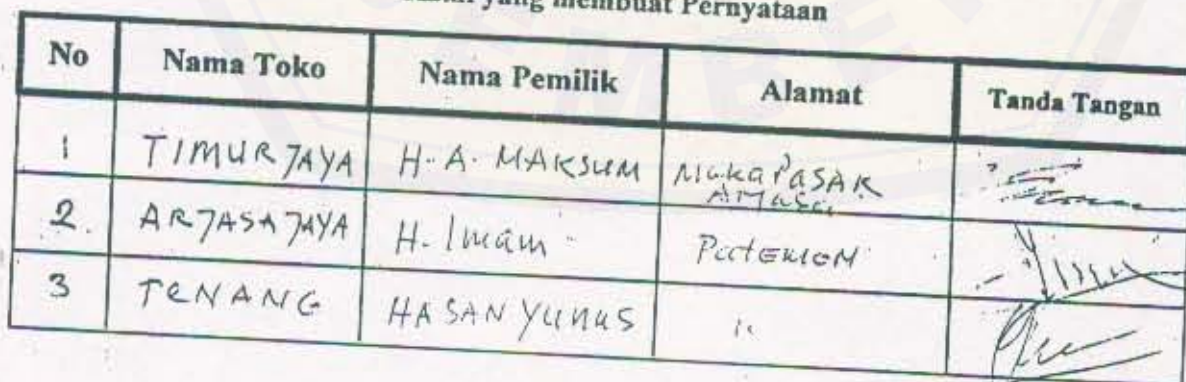 yang membuat Pernyataan
No Nama Toko Nama Pemilik Alamat Tanda Tangan
1 TIMUR JAYA H. A. MAKSUM Muka PASAR
Arjasa
2. ARJASA JAYA H. Imam
3 TENANG HASAN YUNUS